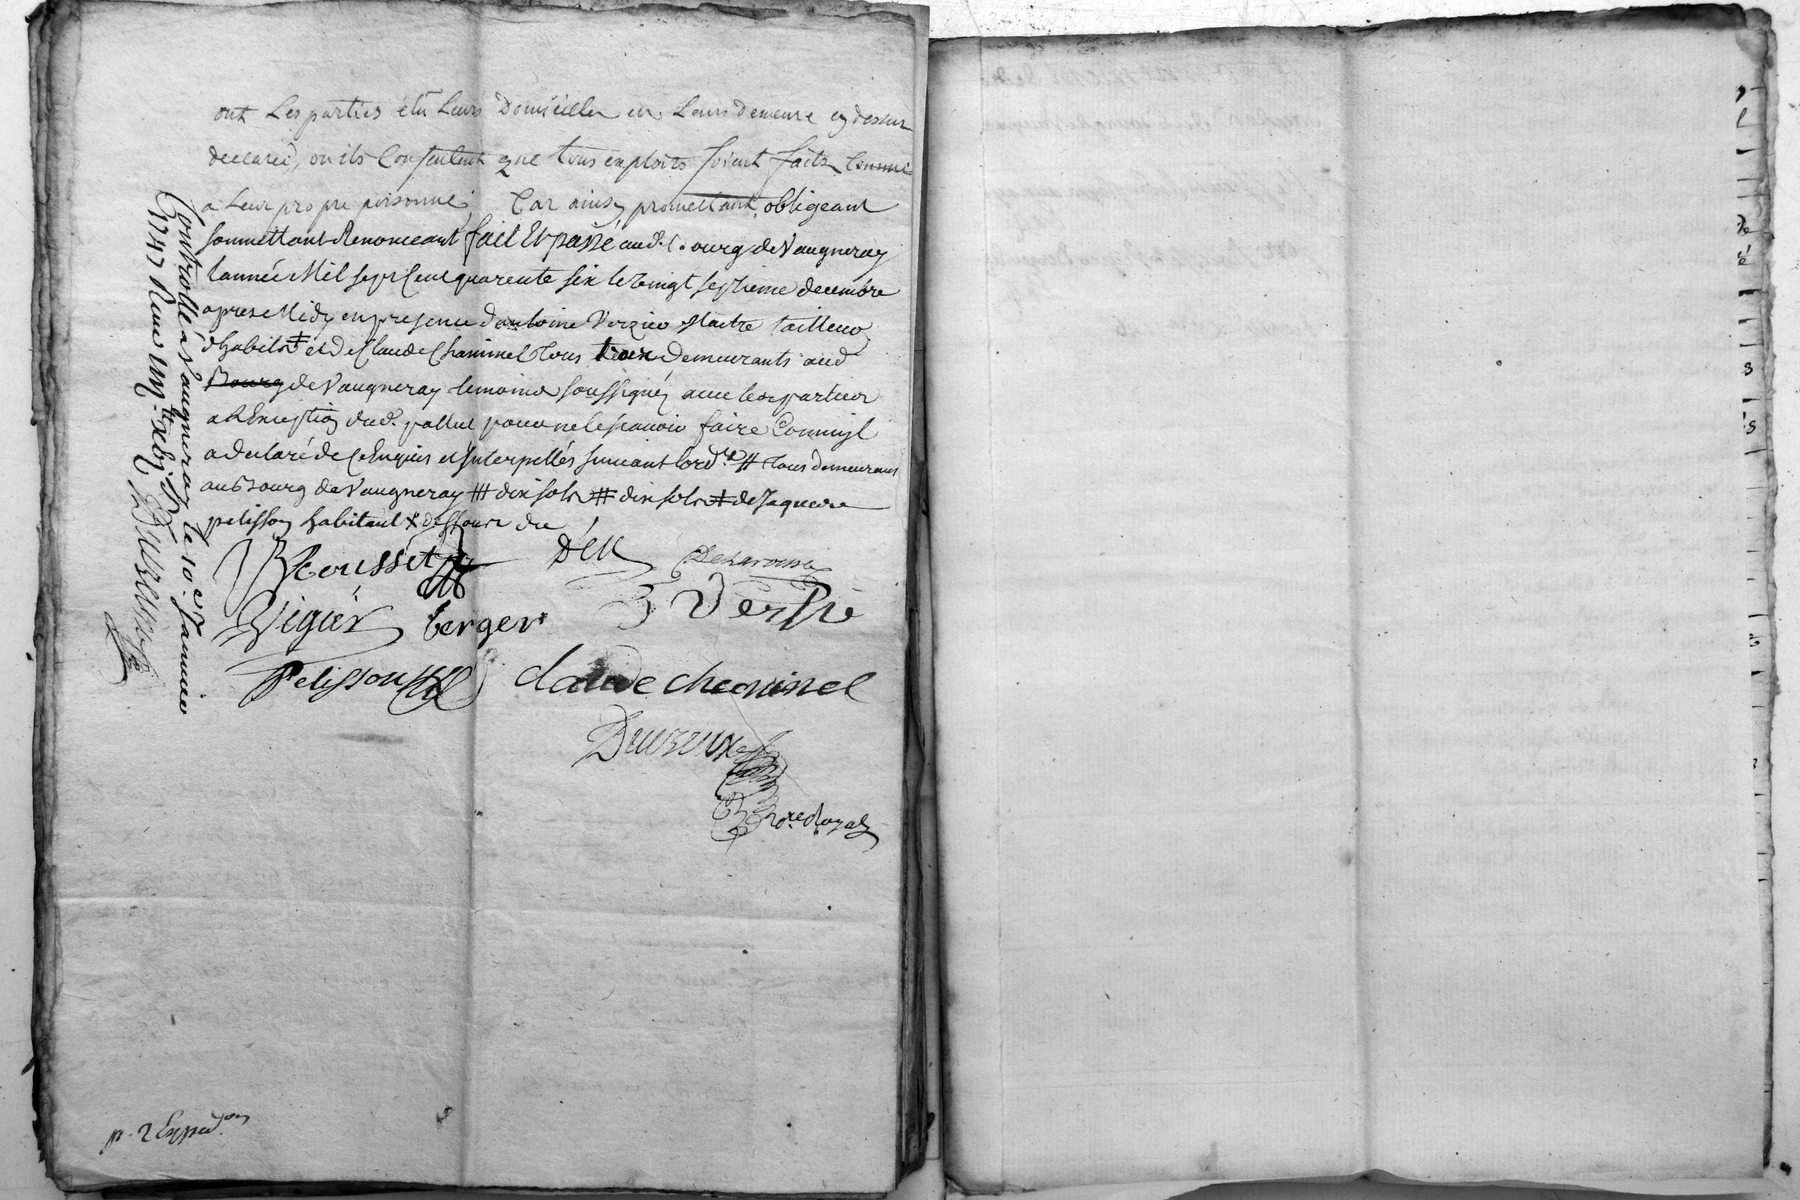 ont Les parties élû Leurs Domicilles en Leurs demeure cy dessus
declareé, ou ils Consentent que tous exploits soient faits Comme
a Leur propre personne, Car ainsy promettant, obligeant
soumettant Renonceant fait Et passé aud. Bourg de Vaugneray
lannée Mil sept Cent quarente six le vingt septieme decembre
apres Midy en presence dantoine Verzieu Maitre tailleur
dhabits et de Claude Cheminel tous deux demeurants aud
Bourg de Vaugneray temoins soussignéz avec les parties
a l'Exception dud. pour ne le sçavoir faire Comm'il
a declaré de Ce Enquis et Interpellés suivant lord.re # tous demeurans
au Bourg de Vaugneray # dix sols # dix sols # de Jaques
pelisson habitant
Rousset
Vigier berger
Pelisson claude cheminel
Dureux
No.re Royal
Controllé à Vaugneray le 10.e Janvier
1747 Reçu
p. 2 Expéd.on